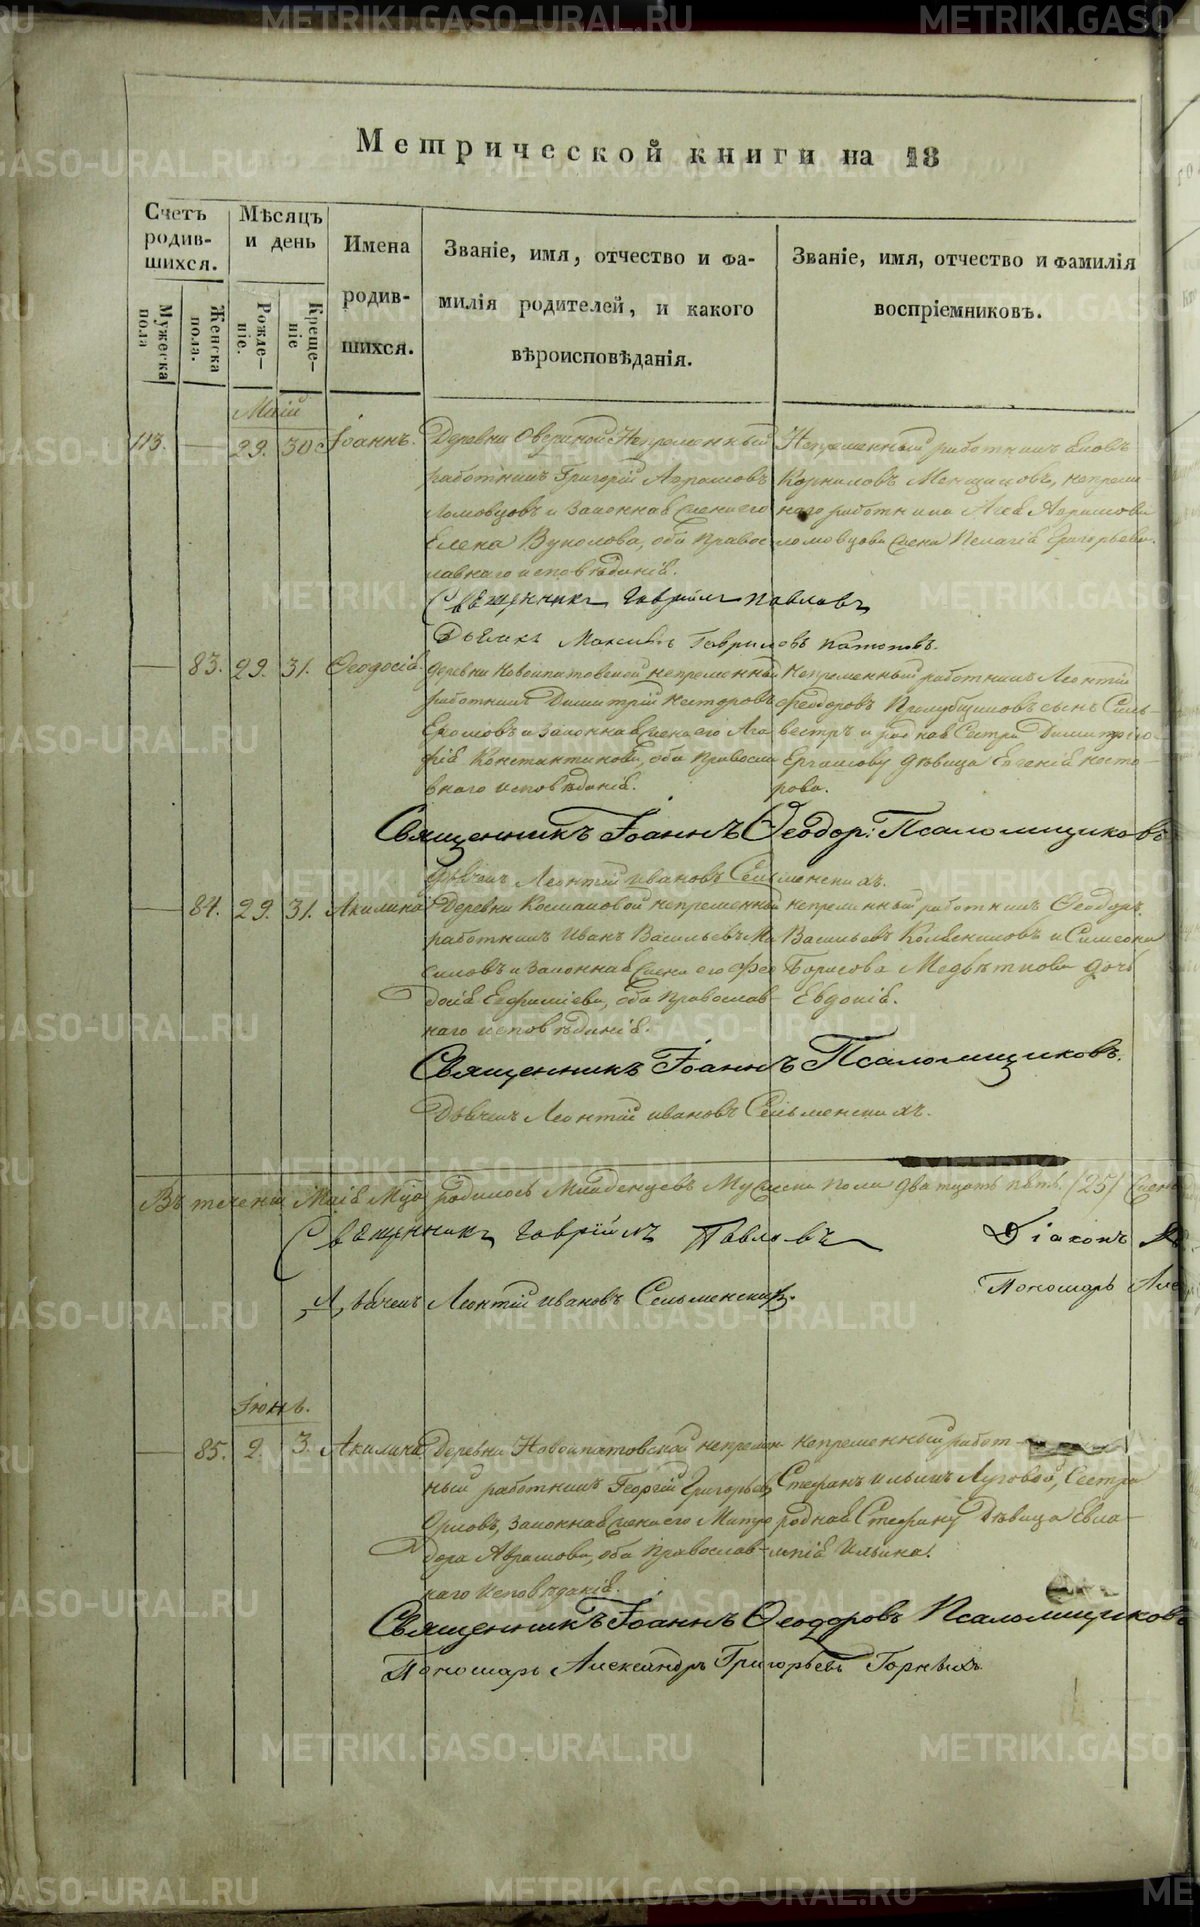 Метрической книги на 18
Счетъ родив-шихся.
Мѣсяцъ и день
Имена родив-шихся.
Званіе, имя, отчество и фа-
милія родителей, и какого
вѣроисповѣданія.
Званіе, имя, отчество и фамилія
воспріемниковъ.
Мужеска пола
Женска пола.
Рожде-ніе.
Креще-ніе
Маій
113. — 29. 30 Іоаннъ.
Деревни Овериной Непременный
работникъ Григорій Абрамовъ
Ломовцовъ и законная жена его
Елена Вуколова, оба право-
славнаго исповѣданія.
Непременный работникъ Іовъ
Корниловъ Менщиковъ, непреме-
наго работника Абрамова
ломовцова жена Пелагія Григорьева.
Священникъ Гавріилъ Павловъ
Дьячекъ Максимъ Гавриловъ
— 83. 29. 31. Ѳеодосія
деревни Новоипатовской непременный
работникъ Димитрій Несторовъ
и законная жена его Ага-
фія Константинова, оба православ-
внаго исповѣданія.
Непременный работникъ Леонтій
Феодоровъ сынъ Силь-
вестръ и родная Сестра Димитрію
дѣвица Евгенія Несто-
рова.
Священникъ Іоаннъ Ѳеодор: Псаломщиковъ
Дьячекъ Леонтій Ивановъ Сельменскихъ.
— 84. 29. 31. Акилина
Деревни Космаковой непременный
работникъ Иванъ Васильевъ Ма-
симовъ и законная жена его Фео-
досія Евфимиева, оба православ-
наго исповѣданія.
непременный работникъ Ѳеодоръ
Васильевъ и Симеона
Борисова Медвѣткова дочь
Евдокія.
Священникъ Іоаннъ Псаломщиковъ.
Дьячекъ Леонтій Ивановъ Сельменскихъ.
Въ теченіи Маія М-ца родилось Младенцевъ Мужеска пола двадцать пять (25) Женс
Священникъ Гавріилъ Павловъ
Діаконъ
Дьячекъ Леонтій Ивановъ Сельменскихъ.
Пономарь Але
Іюнь.
— 85. 2. 3. Акилина
Деревни Новоипатовской непремен-
ный работникъ Георгій Григорьевъ
Орловъ, законная жена его Митро-
дора Абрамова, оба православ-
наго исповѣданія.
непременный работ-
Стефанъ Ильинъ Луговой, Сестра
родная Стефану Дѣвица Евла-
мпія Ильина.
Священникъ Іоаннъ Ѳеодоровъ Псаломщиковъ
Пономарь Александръ Григорьевъ Горныхъ
METRIKI.GASO-URAL.RU